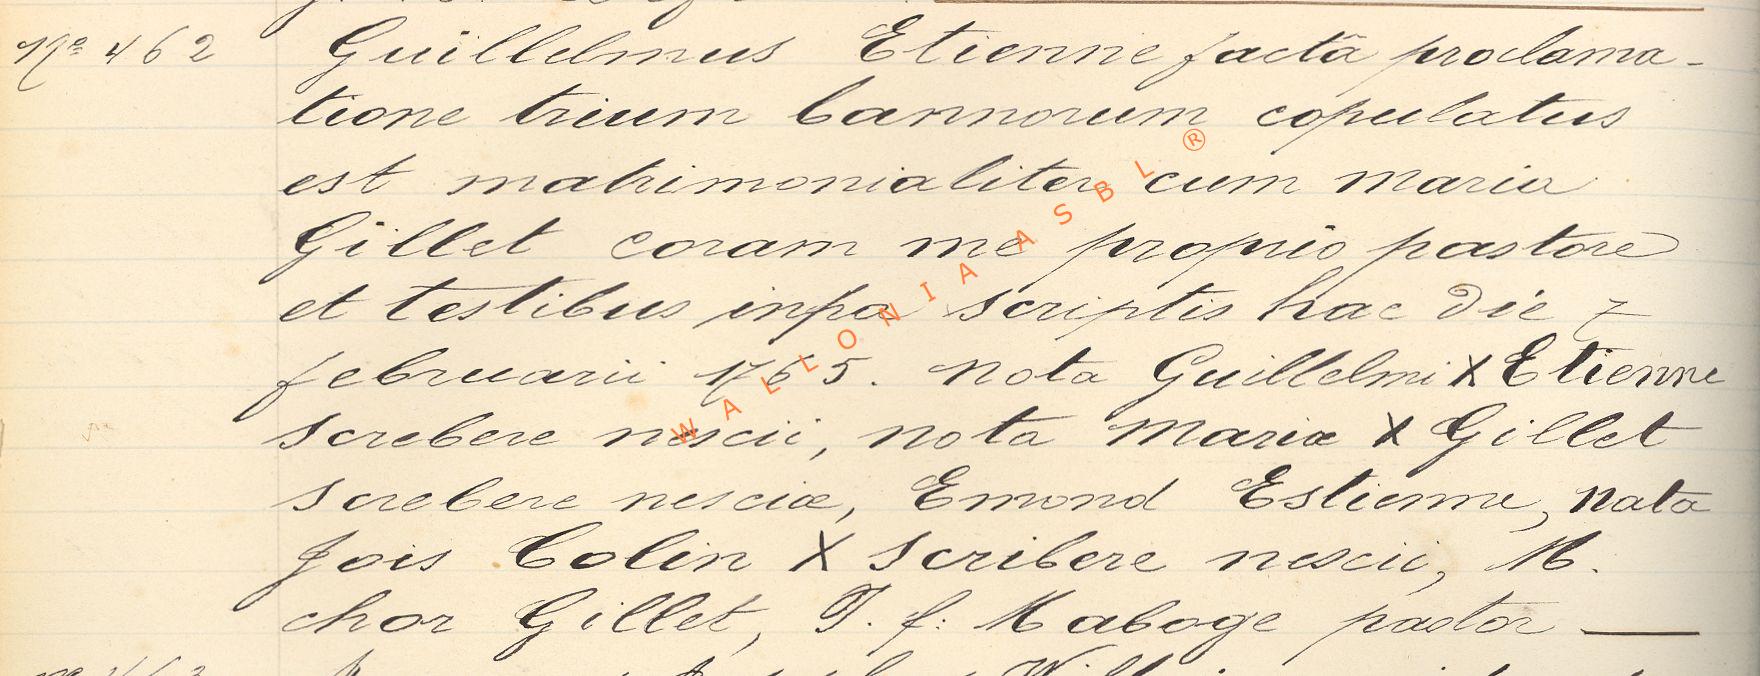 No 462 Guillelmus Etienne factâ proclama-
tione trium bannorum copulatus
est matrimonialiter cum maria
Gillet coram me proprio pastore
et testibus infra scriptis hac die 7
februarii 1765. nota Guillelmi X Etienne
screbere nescii, nota Mariæ X Gillet
screbere nesciæ, Emond Estienne, nata
Jois Colin X scribere nescii, M.
chor Gillet, J. f: Maboge pastor
WALLONIA ASBL ®